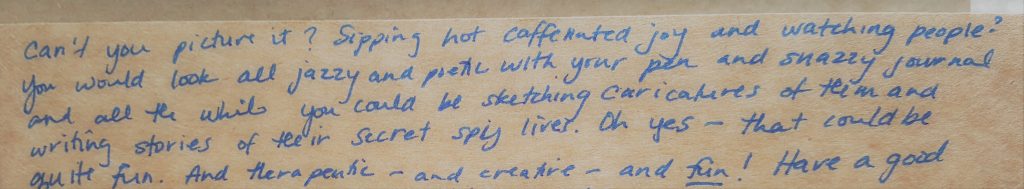 Can't you picture it? Sipping hot caffenated joy and watching people?
You would look all jazzy and poetic with your pen and snazzy journal
and all the while you could be sketching caricatures of them and
writing stories of their secret spy lives. Oh yes – that could be
quite fun. And therapeutic – and creative – and fun! Have a good